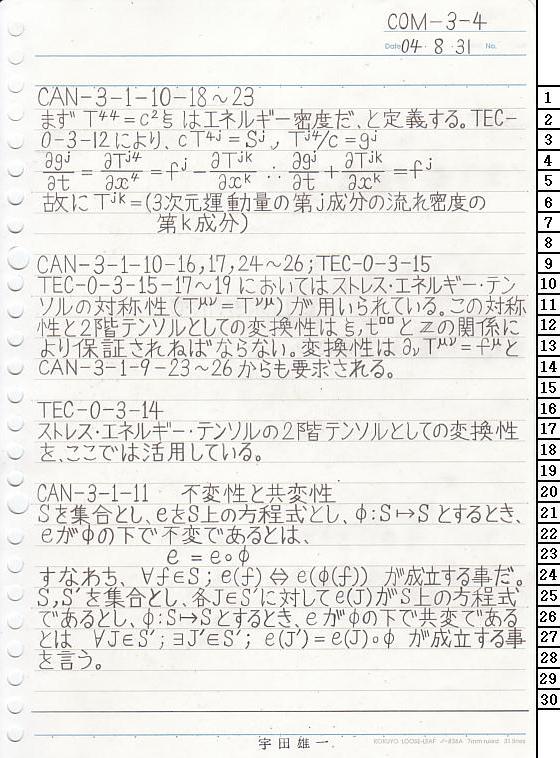 COM-3-4
Date 04・8・31 No.
CAN-3-1-10-18～23
まず T⁴⁴=c²ξ はエネルギー密度だ、と定義する。TEC-
0-3-12により、cT⁴ʲ=Sʲ, Tʲ⁴/c=gʲ
∂gʲ/∂t = ∂Tʲ⁴/∂x⁴ = fʲ - ∂Tʲᵏ/∂xᵏ ∴ ∂gʲ/∂t + ∂Tʲᵏ/∂xᵏ = fʲ
故にTʲᵏ=(3次元運動量の第j成分の流れ密度の
第k成分)
CAN-3-1-10-16,17,24～26;TEC-0-3-15
TEC-0-3-15-17～19においてはストレス・エネルギー・テン
ソルの対称性(Tᵘᵛ=Tᵛᵘ)が用いられている。この対称
性と2階テンソルとしての変換性はξ,t□□とℤの関係に
より保証されねばならない。変換性は∂νTᵘᵛ=fᵘと
CAN-3-1-9-23～26からも要求される。
TEC-0-3-14
ストレス・エネルギー・テンソルの2階テンソルとしての変換性
を、ここでは活用している。
CAN-3-1-11 不変性と共変性
Sを集合とし、eをS上の方程式とし、φ:S↦Sとするとき、
eがφの下で不変であるとは、
e = e∘φ
すなわち、∀f∈S; e(f) ⇔ e(φ(f)) が成立する事だ。
S,S′を集合とし、各J∈S′に対してe(J)がS上の方程式
であるとし、φ:S↦Sとするとき、eがφの下で共変である
とは ∀J∈S′; ∃J′∈S′; e(J′)=e(J)∘φ が成立する事
を言う。
宇田雄一
KOKUYO LOOSE-LEAF ノ-836A 7mm ruled 31 lines
1
2
3
4
5
6
7
8
9
10
11
12
13
14
15
16
17
18
19
20
21
22
23
24
25
26
27
28
29
30